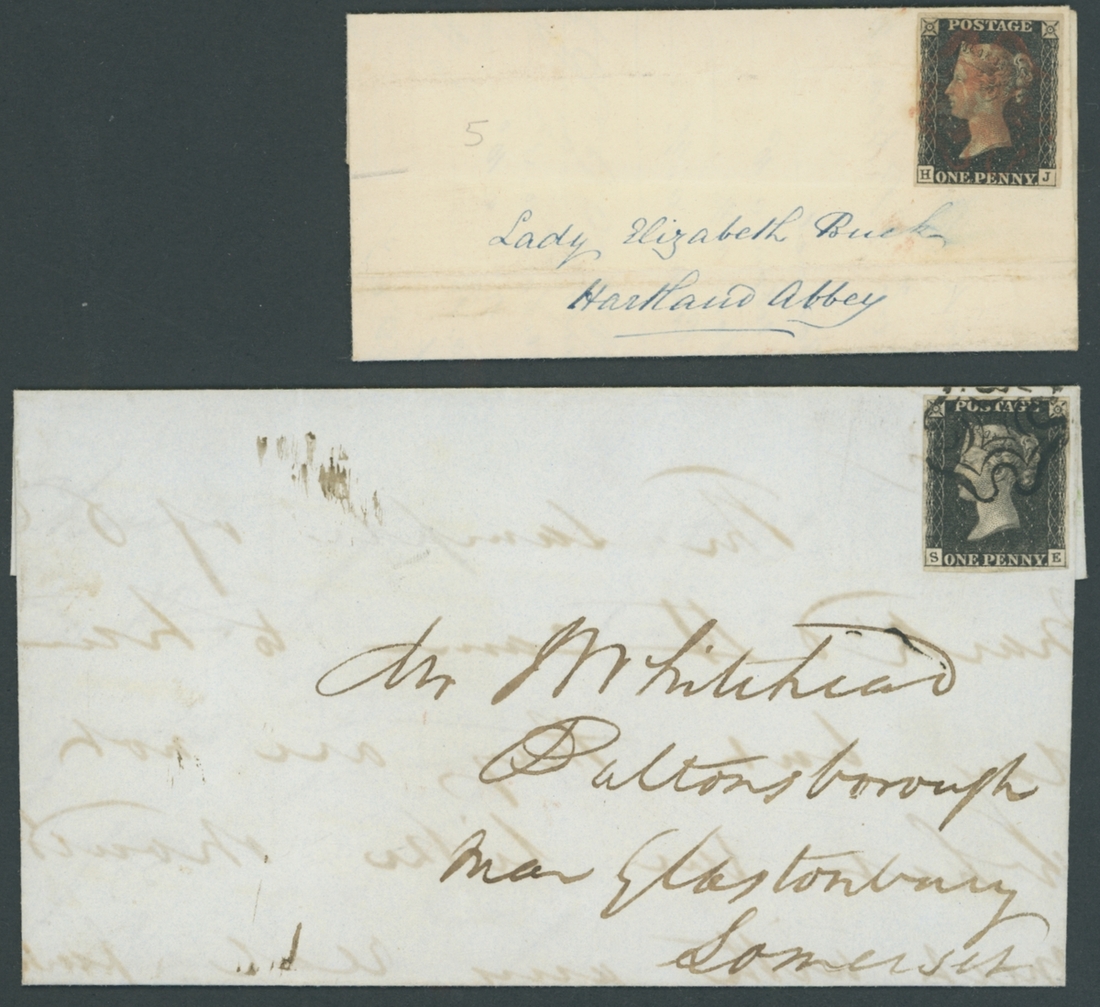 POSTAGE
H ONE PENNY. J
5
Lady Elizabeth Buck
Hartland Abbey
POSTAGE
S ONE PENNY. E
Mr Whitehead
Baltonsborough
Near Glastonbury
Somerset